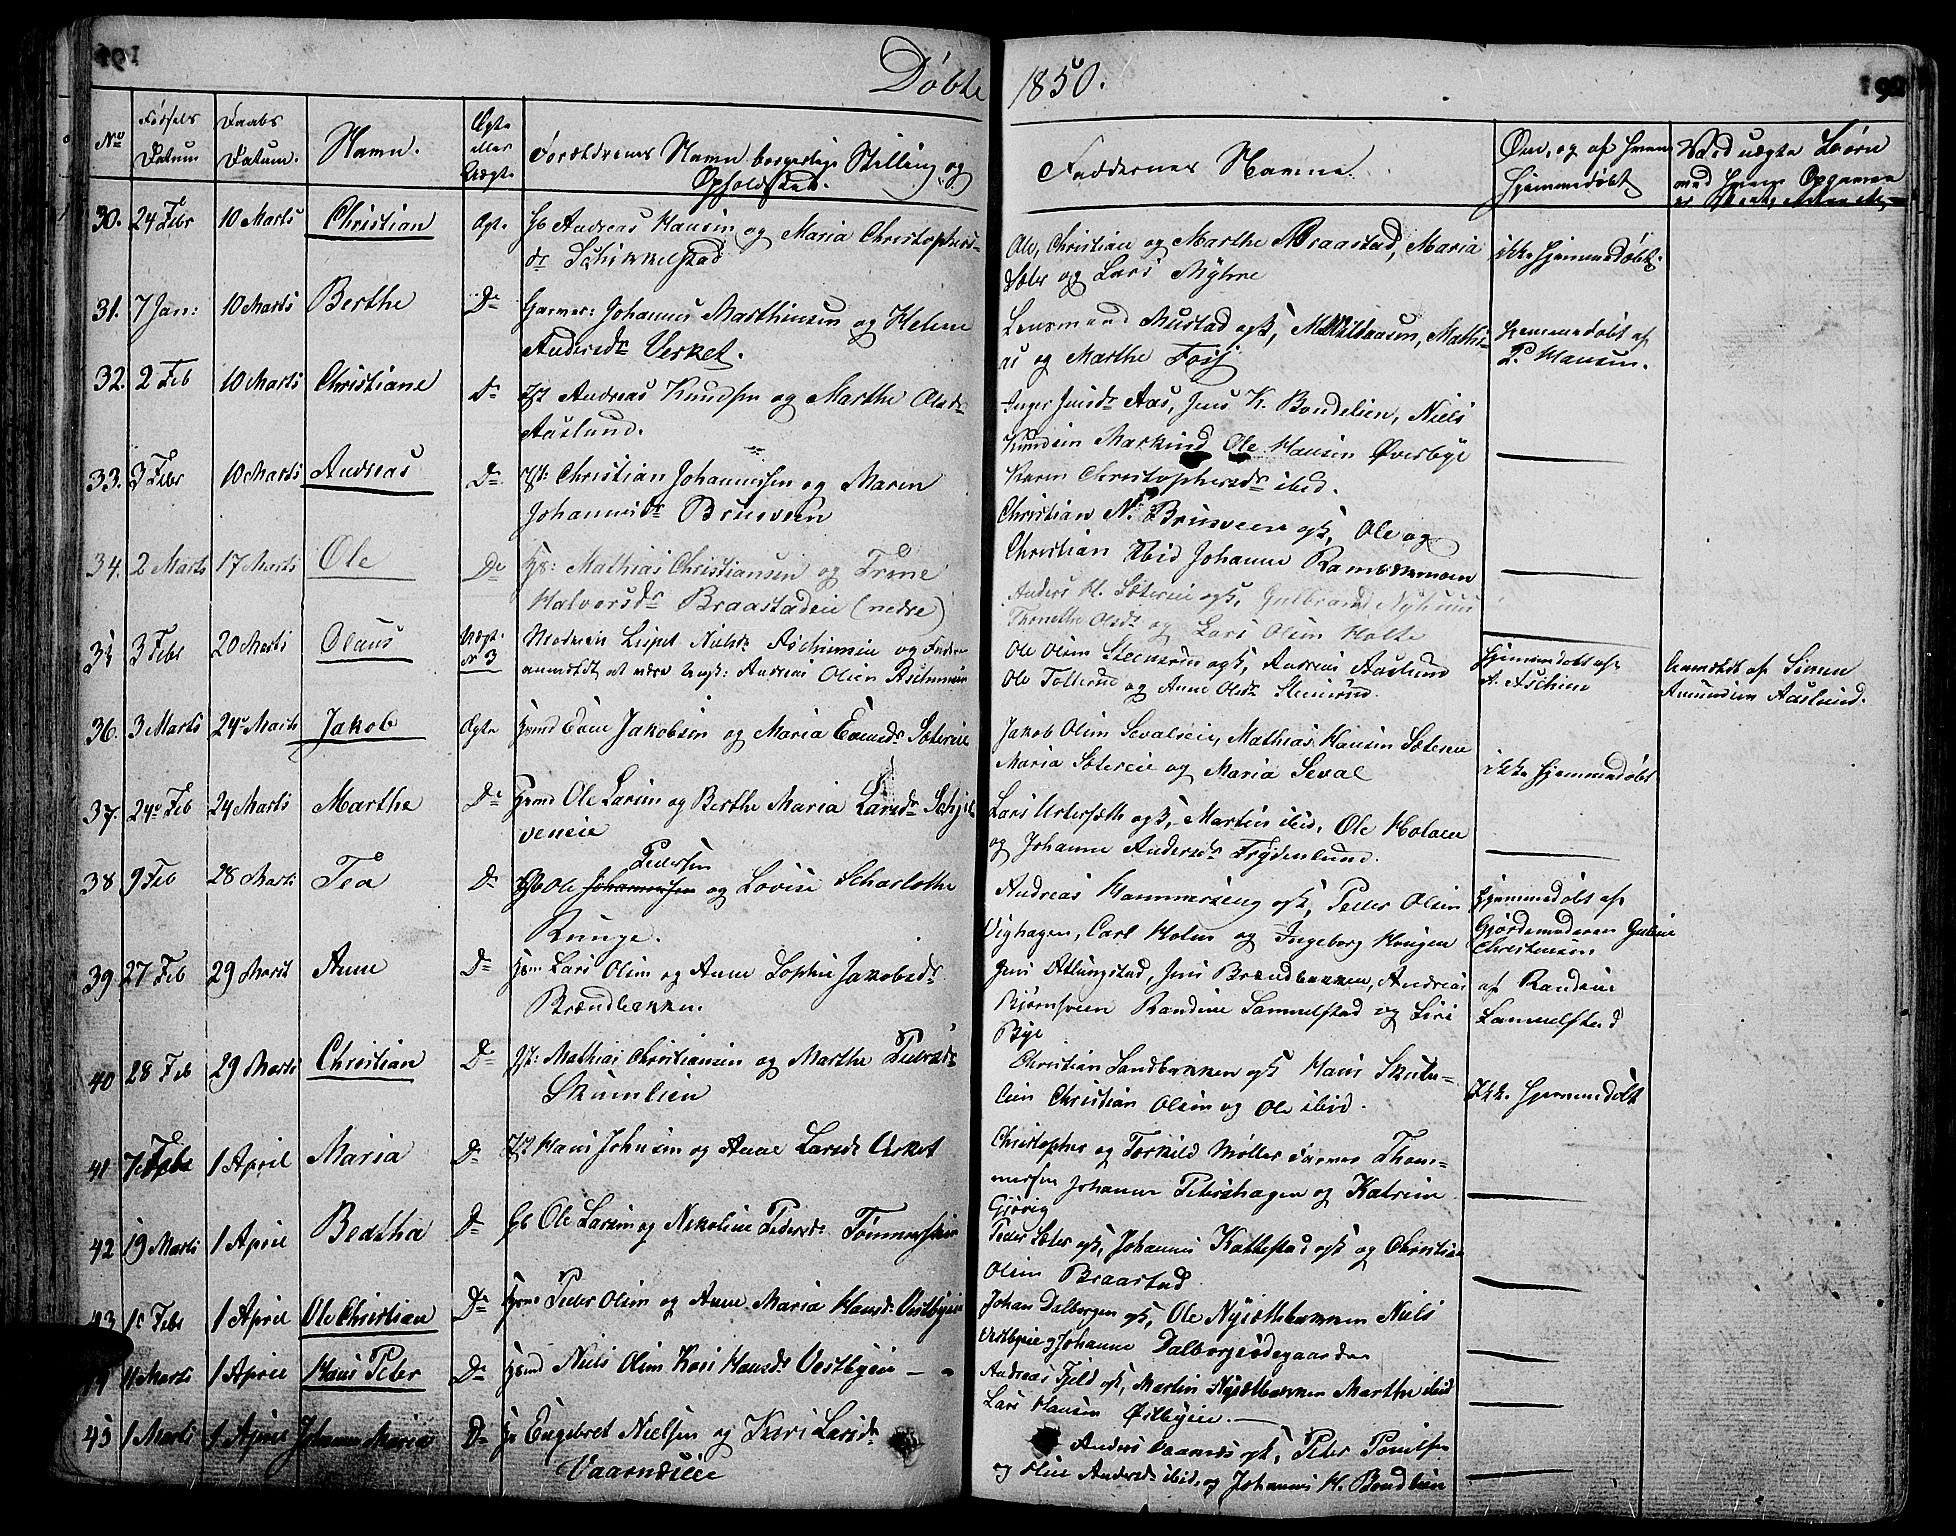 191
Døbte
1850.
192
No
Fødsels Datum
Daabs Datum.
Navn.
Ægte eller Uægte
Forældrenes Navn borgerlige Stilling og Opholdsted.
Faddernes Navne.
Om, og af hvem Hjemmedøbt
Ved uægte Børn
30. 24 Febr 10 Marts Christian Ægte Gb Andreas Hansen og Maria Christophers-
dr Schikkelstad
Ole, Christian og Marthe Braastad, Maria
Sæter og Lars Myhre
ikke hjemmedøbt.
31. 7 Jan: 10 Marts Berthe Do Garver: Johannes Marthinsen og Helene
Andersdr Verket.
Lensmand Mustad og K, M Mildassen, Mathi-
as og Marthe Foss
hjemmedøbt af
P. Hansen.
32. 2 Feb 10 Marts Christiane Do Andreas Knudsen og Marthe Olsdr
Aaslund.
Inger Jensdr Aas, Jens K. Bondelien, Niels
Knudsen Ole Hansen Øverbye
Karen Christophersdr ibid.
33. 3 Febr 10 Marts Andreas Do Christian Johannessen og Maren
Johannesdr Brusveen
Christian N. Brusveen og K, Ole og
Christian ibid Johanne
34. 2 Marts 17 Marts Ole Do Mathias Christiansen og Trine
Halvorsdr Braastadeie (nedre)
Anders H. Sætereie og K, Gulbrand Nyhuus
Thonette Olsdr og Lars Olsen Holte
35 3 Febr 20 Marts Olaus Uægte No 3 Moderen Lispet Nielsdr Aschimeie og Fader
anmeldt at være Ungk: Andreas Olsen Aschimeie
Ole Olsen Steensrud og K, Andreas Aaslund
Ole Totterud og Anne Olsdr Steensrud.
Hjemmedøbt af
A. Aschim
Anmeldt af Simen
Amundsen Aaslund.
36. 3 Marts 24 Marts Jakob Ægte Huusmd Even Jakobsen og Maria Evensdr Sætereie
Jakob Olsen Sevalseie, Mathias Hansen Sætereie
Maria Sætereie og Maria Seval
ikke hjemmedøbt
37. 24 Feb 24 Marts Marthe Do Huusmd Ole Larsen og Berthe Maria Larsdr Schjel-
veneie
Lars Østerfæth og K, Martin ibid, Ole Holmen
og Johanne Andersdr Frydenlund.
38 9 Feb 28 Marts Tea Do Gb Ole Johannessen Pedersen og Lovise Scharlothe
Runge.
Andreas Hammerseng og K, Peder Olsen
Vighagen, Carl Holm og Ingeborg Haugen
Hjemmedøbt af
Gjordemoderen Guline
Christensen
39. 27 Feb 29 Marts Anne Do Lars Olsen og Anne Sophie Jakobsdr
Brændbakken.
Jens Allungstad, Jens Brændbakken, Andreas
Bjørnsveen Randine Sammelstad og Siri
Bye
af Randine
Sammelstad
40 28 Feb 29 Marts Christian Do Mathias Christiansen og Marthe Pedersdr
Skumlien
Christian Sandbakken og K Hans Skum-
lien Christian Olsen og Ole ibid.
Ikke hjemmedøbt
41 7 Febr 1 April Maria Do Hans Johnsen og Anne Larsdr Verket
Christopher og Torkild Møller Farver Thom-
messen Johanne Petershagen og Katrine
Gjøvig
42 19 Marts 1 April Beatha Do Gb Ole Larsen og Nikoline Pedersdr
Peder Sæter og K, Johannes Kattestad og K og Christian
Olsen Braastad
43 1 Febr 1 April Ole Christian Do Peder Olsen og Anne Maria Hansdr Vestbyeie
Johan Dalborgen og K, Ole Nysethbakken Niels
Vestbyeie og Johanne Dalborgsødegaarden
44 11 Marts 1 April Hans Peter Do Niels Olsen Kari Hansdr Vestbyeie
Andreas Fjeld og K, Martin Nysethbakken Marthe ibid
Lars Hansen Østbyeie.
45 1 Marts 1 April Johanne Maria Do Engebret Nielsen og Kari Larsdr
Vaarnæseie
Anders Vaarnæs og K, Peter Poulsen
og Oline Andersdr ibid. og Johannes H. Bondlien